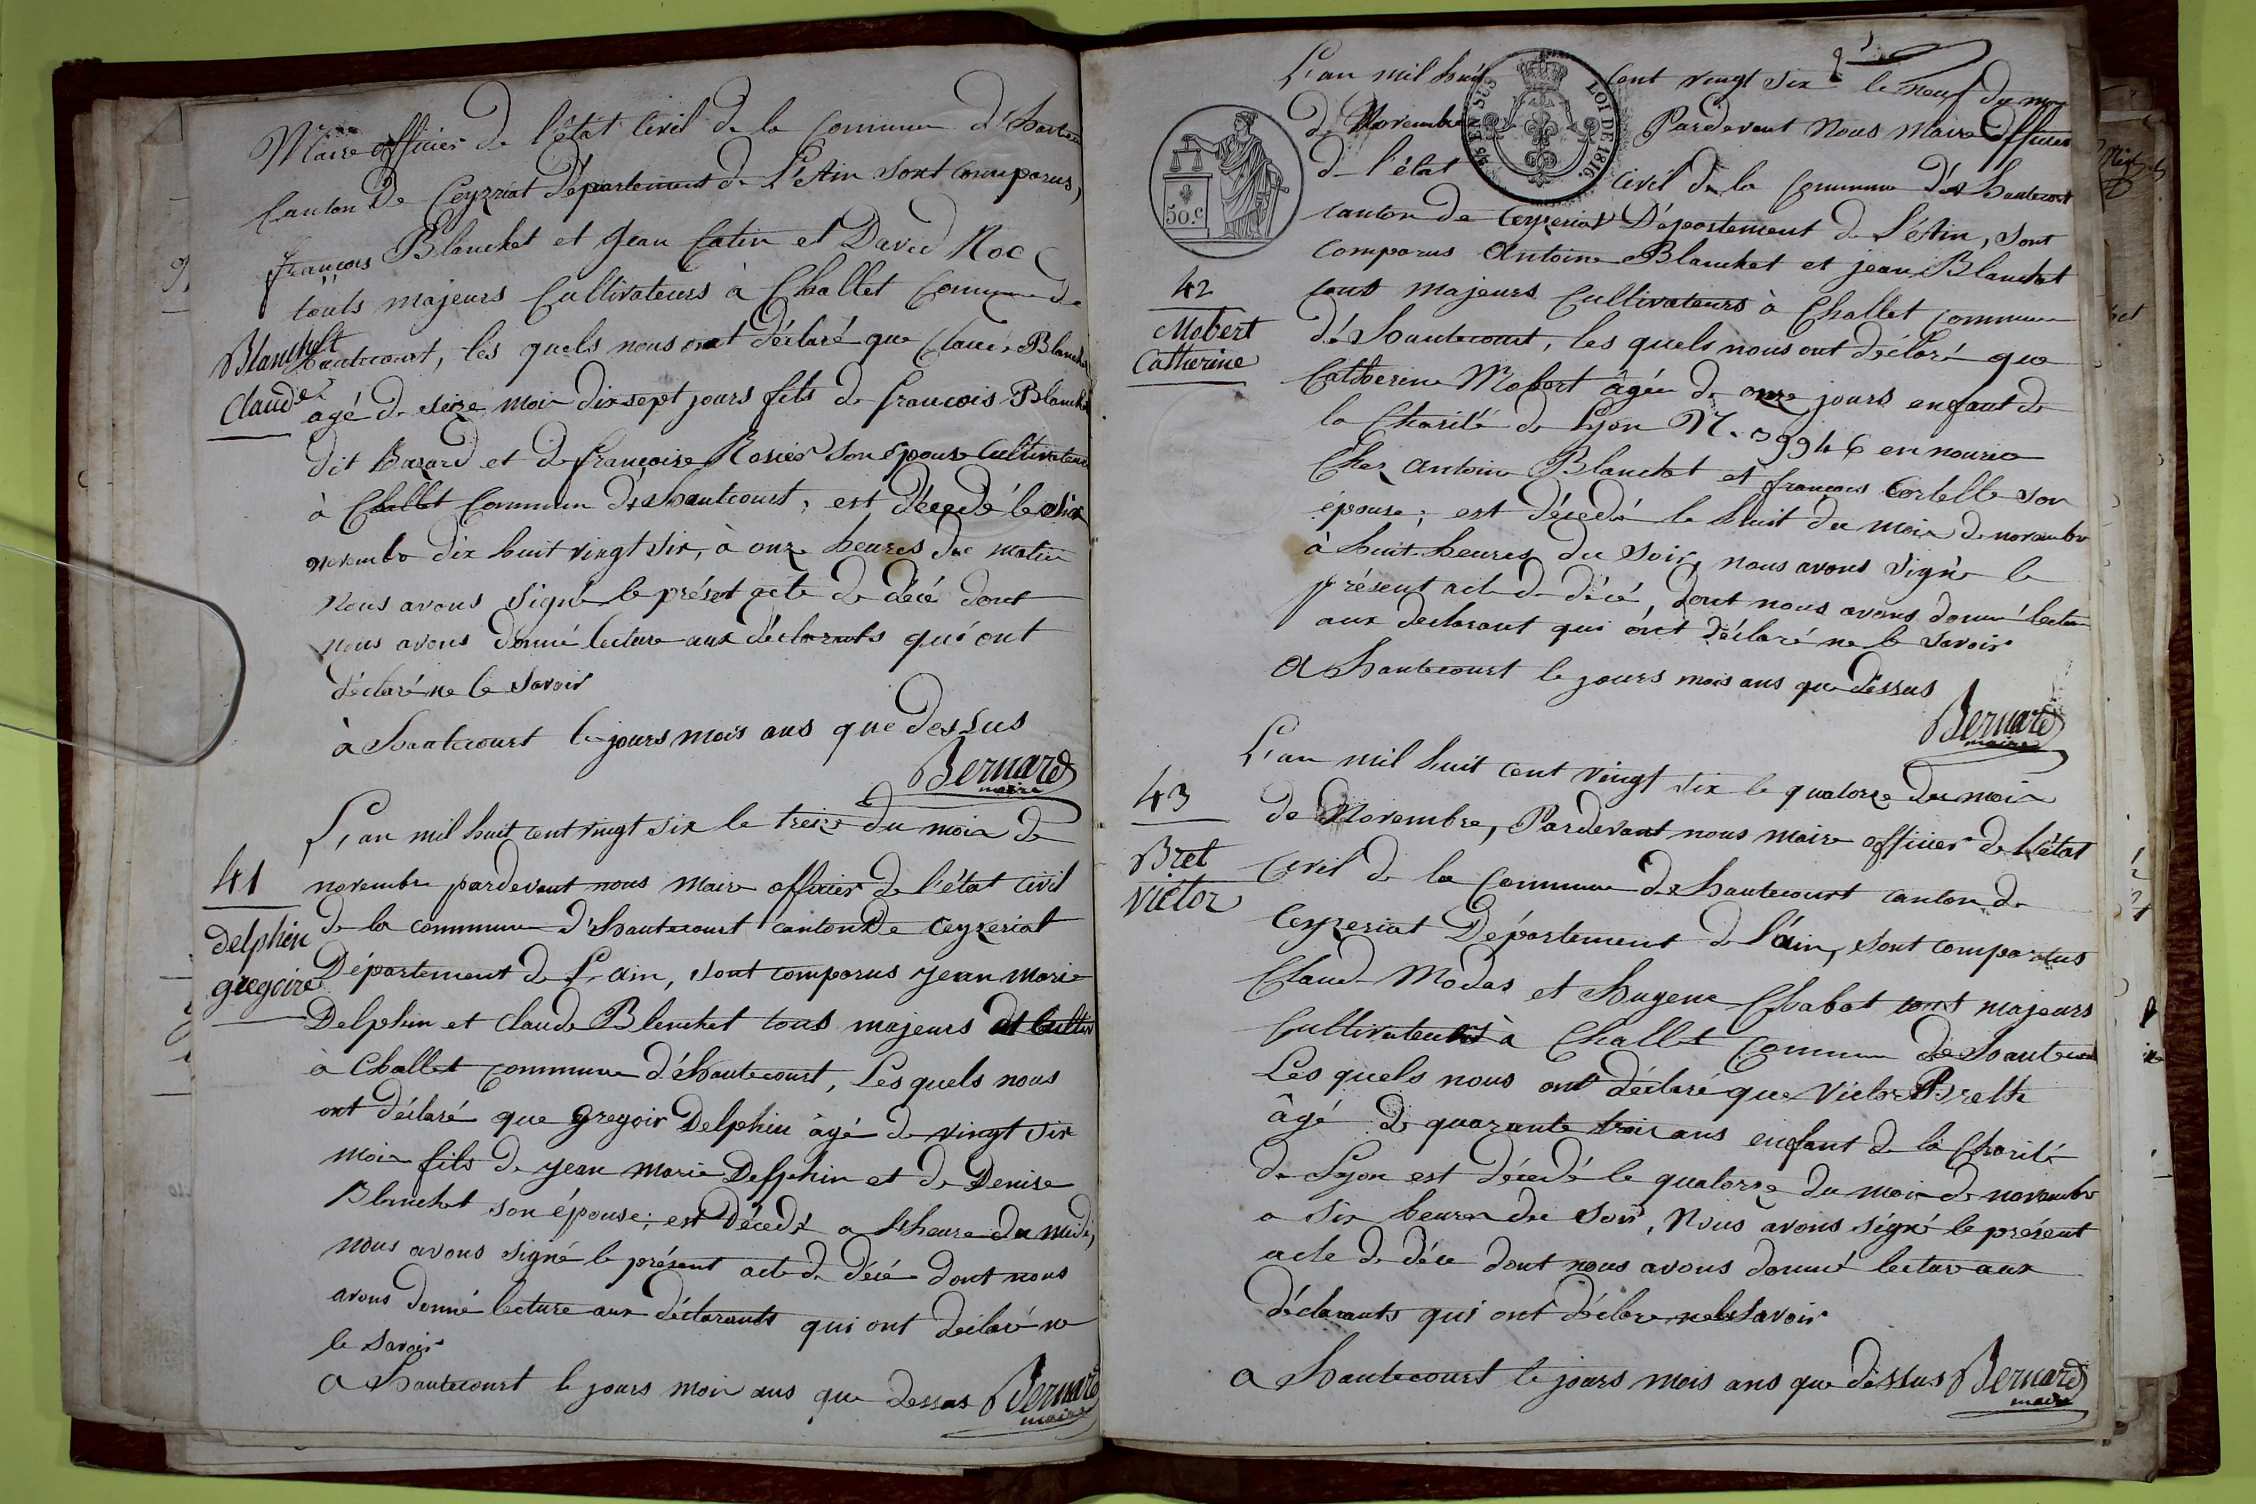 Maire officier de l'état Civil de la Commune d'hautecourt
Canton de Ceyzeriat Département de l'Ain sont comparus,
françois Blanchet et Jean Catin et David Noc
touts majeurs Cultivateurs à Challet Commune de
Blanchet
Claude
hautecourt, les quels nous ont déclaré que Claude Blanchet
agé de seize mois dix sept jours fils de françois Blanchet
dit Bazard et de françoise Rosier son épouse Cultivateurs
à Challet Commune d'hautecourt, est décédé le six
novembre dix huit vingt six, à onze heures du matin
nous avons signé le présent acte de décé dont
nous avons donné lecture aux déclarants qui ont
déclaré ne le savoir
à hautecourt le jours mois ans que dessus
Bernard
maire
41
Delphin
gregoire
L'an mil huit cent vingt six le treize du mois de
novembre pardevant nous maire officier de l'état civil
de la commune d'hautecourt canton de ceyzeriat
Département de L'ain, sont comparus jean marie
Delphin et claude Blenchet tous majeurs et Cultiv
à Challet commune d'hautecourt, Les quels nous
ont déclaré que gregoir Delphin âgé de vingt six
mois fils de jean marie Delphin et de Denise
Blenchet son épouse; est décedé a heure du midi,
nous avons signé le présent acte de décé dont nous
avons donné lecture aux déclarants qui ont déclaré ne
le savoir
a hautecourt le jours mois ans que dessus Bernard
maire
50.c
EN SUS
LOI DE 1816.
L'an mil huit cent vingt six le neuf du mois
de Novembre Pardevant Nous Maire Officier
de l'état civil de la Commune d'hautecourt
canton de ceyzeriat Département de l'Ain, sont
comparus Antoine Blanchet et jean Blanchet
42
Mobert
Catherine
tous majeurs Cultivateurs à Challet commune
d'hautecourt, les quels nous ont déclaré que
Catherine Mobert âgée de onze jours enfant de
la Charité de Lyon N. 39946 en nourice
Chez Antoine Blanchet et françois Cortelle son
épouse; est décedé le huit du mois de novembre
à huit heures du soir, nous avons signé le
présent acte de décé, dont nous avons donné lecture
aux declarant qui ont déclaré ne le savoir
A hautecourt le jours mois ans que dessus
Bernard
maire
43
Bret
Victor
L'an mil huit cent vingt six le quatorze du mois
de Novembre, Pardevant nous maire officier de l'état
Civil de la Commune de hautecourt canton de
Ceyzeriat Département de l'ain, sont comparatus
Claude Modas et hugene Chabot tout majeurs
Cultivateurs à Challet Commune de hautecourt
Les quels nous ont déclaré que Victor Brette
âgé de quarante trois ans enfant de la Charité
de Lyon est décedé le quatorze du mois de novembre
a six heures du soir, Nous avons signé le présent
acte de déce dont nous avons donné lecture aux
déclarants qui ont déclare ne le savoir
a hautecourt le jours mois ans que dessus Bernard
maire